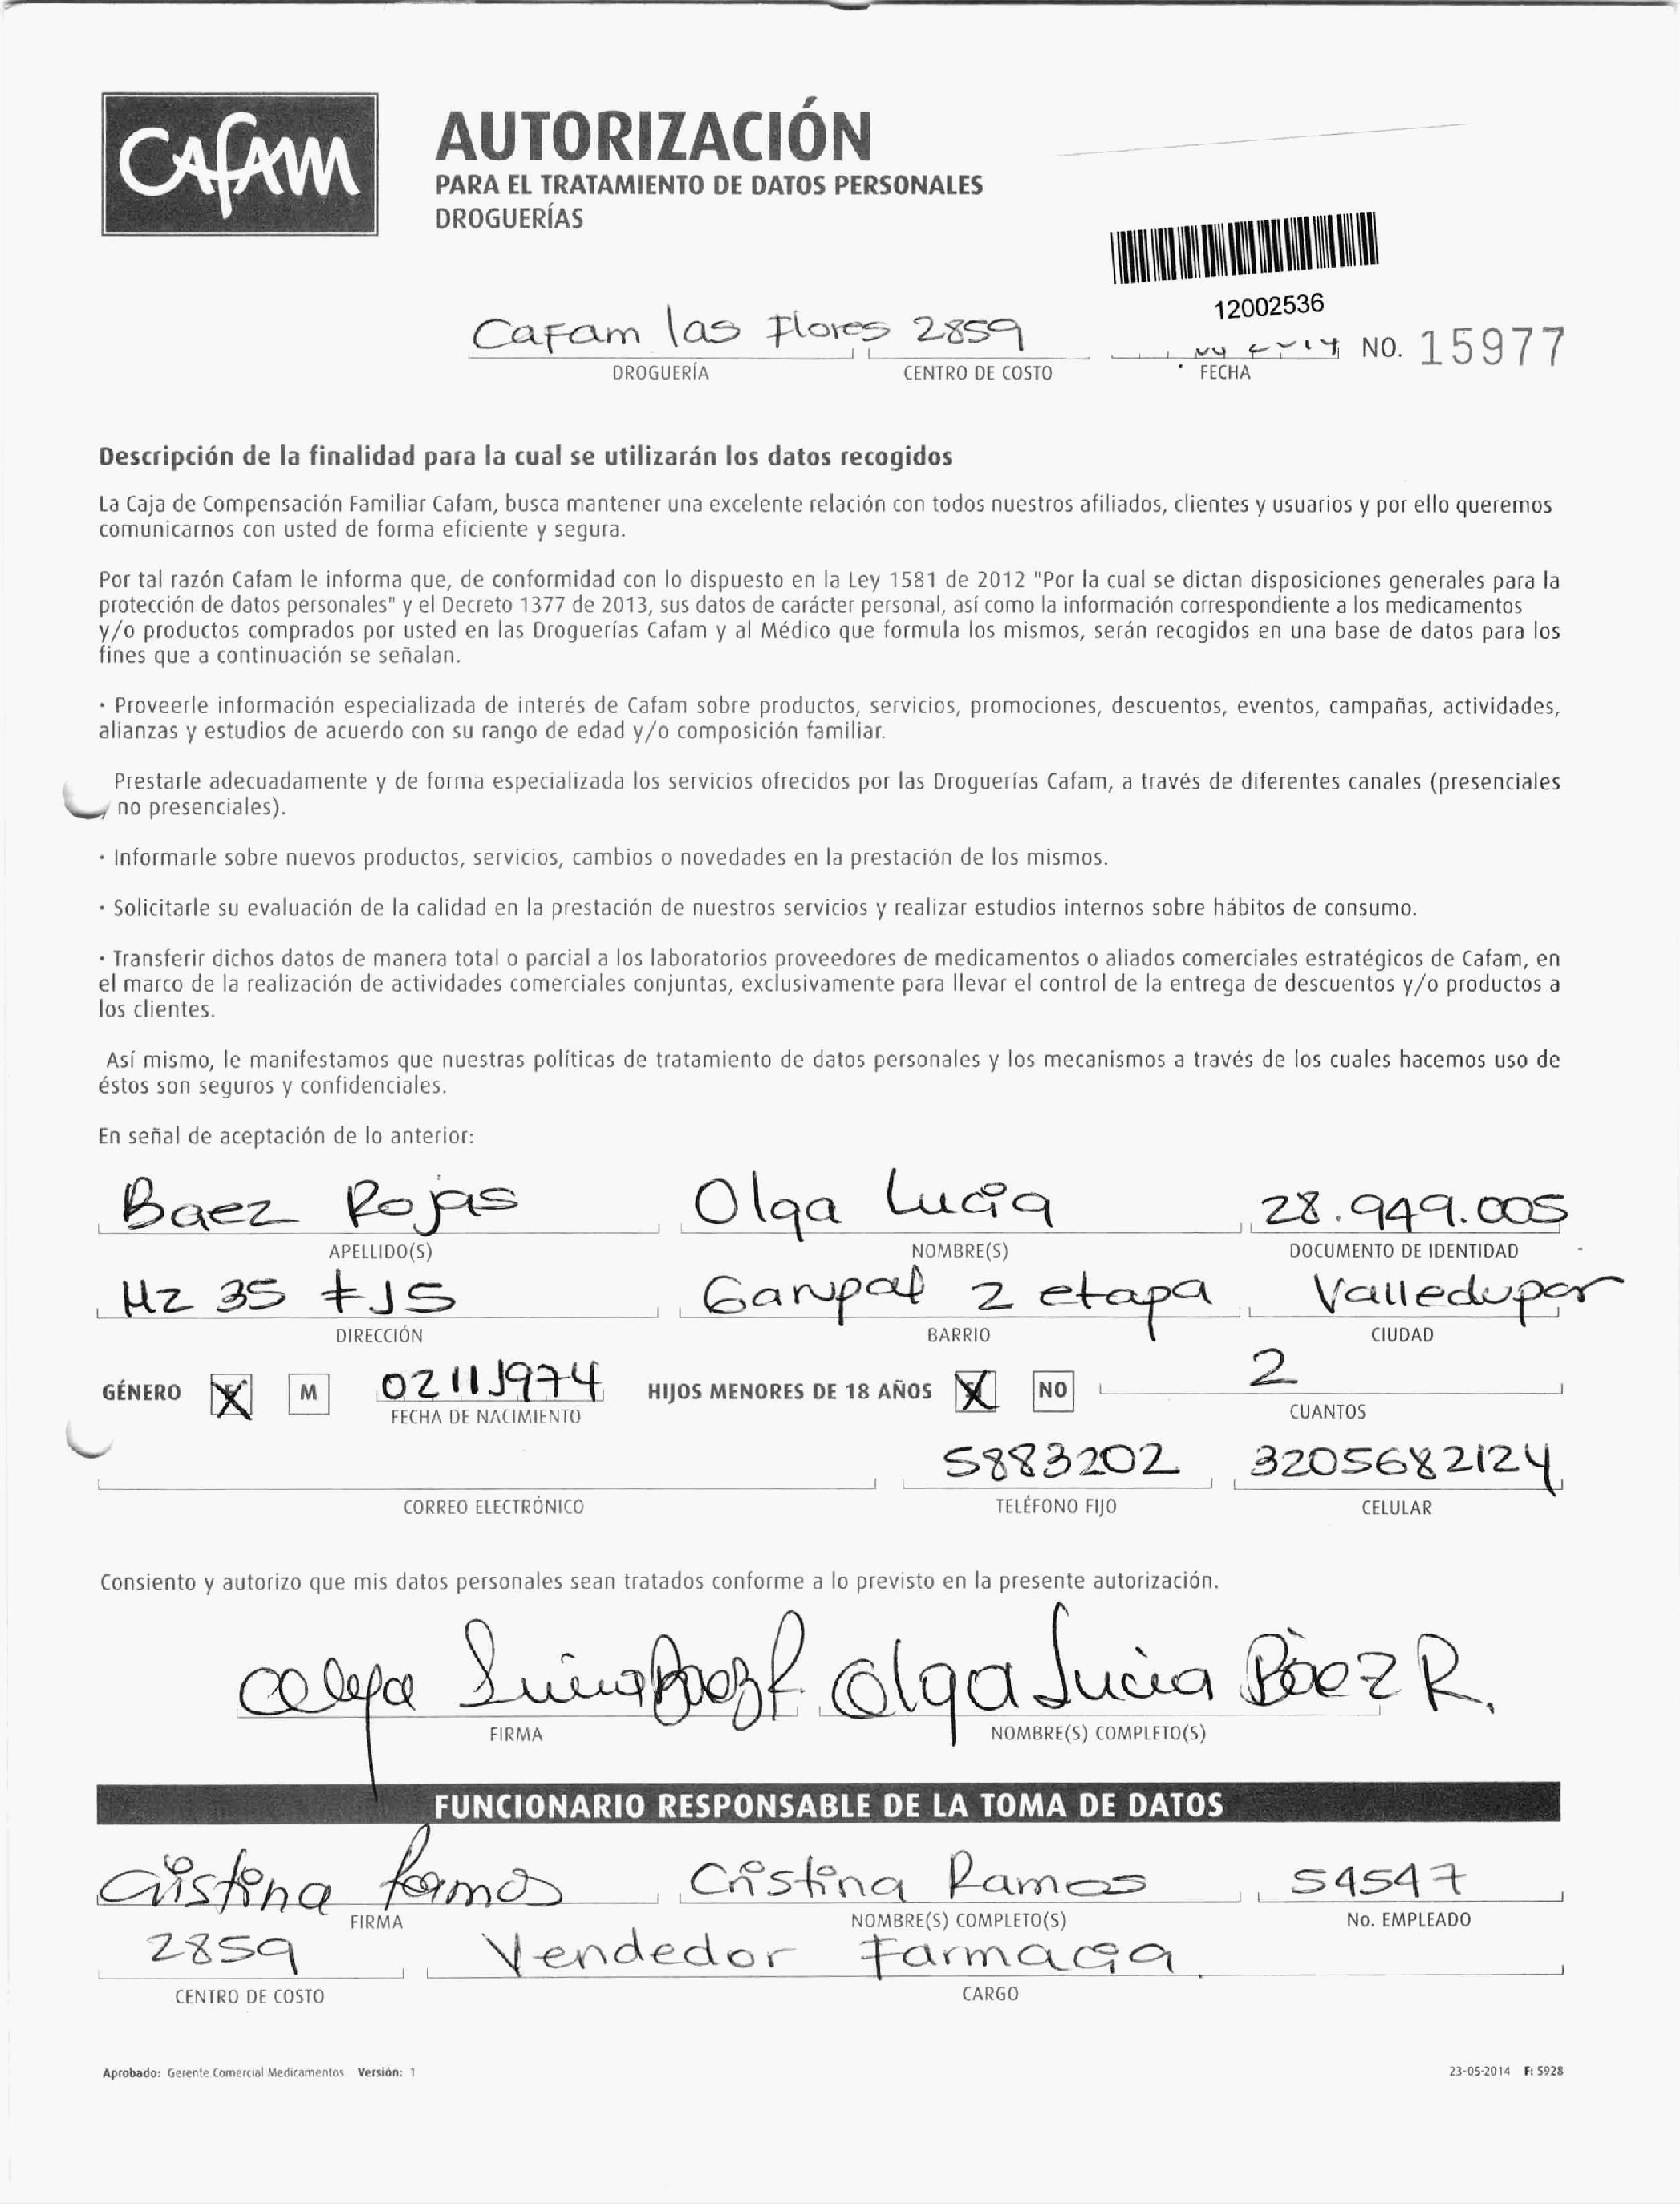 CAFAM
AUTORIZACIÓN
PARA EL TRATAMIENTO DE DATOS PERSONALES
DROGUERÍAS
12002536
Cafam las Flores 2859
NO. 15977
DROGUERÍA CENTRO DE COSTO FECHA
Descripción de la finalidad para la cual se utilizarán los datos recogidos
La Caja de Compensación Familiar Cafam, busca mantener una excelente relación con todos nuestros afiliados, clientes y usuarios y por ello queremos
comunicarnos con usted de forma eficiente y segura.
Por tal razón Cafam le informa que, de conformidad con lo dispuesto en la Ley 1581 de 2012 "Por la cual se dictan disposiciones generales para la
protección de datos personales" y el Decreto 1377 de 2013, sus datos de carácter personal, así como la información correspondiente a los medicamentos
y/o productos comprados por usted en las Droguerías Cafam y al Médico que formula los mismos, serán recogidos en una base de datos para los
fines que a continuación se señalan.
· Proveerle información especializada de interés de Cafam sobre productos, servicios, promociones, descuentos, eventos, campañas, actividades,
alianzas y estudios de acuerdo con su rango de edad y/o composición familiar.
Prestarle adecuadamente y de forma especializada los servicios ofrecidos por las Droguerías Cafam, a través de diferentes canales (presenciales
no presenciales).
· Informarle sobre nuevos productos, servicios, cambios o novedades en la prestación de los mismos.
· Solicitarle su evaluación de la calidad en la prestación de nuestros servicios y realizar estudios internos sobre hábitos de consumo.
· Transferir dichos datos de manera total o parcial a los laboratorios proveedores de medicamentos o aliados comerciales estratégicos de Cafam, en
el marco de la realización de actividades comerciales conjuntas, exclusivamente para llevar el control de la entrega de descuentos y/o productos a
los clientes.
Así mismo, le manifestamos que nuestras políticas de tratamiento de datos personales y los mecanismos a través de los cuales hacemos uso de
éstos son seguros y confidenciales.
En señal de aceptación de lo anterior:
Baez Rojas Olga Lucia 28.949.005
APELLIDO(S) NOMBRE(S) DOCUMENTO DE IDENTIDAD
Mz 35 #15 Garupal 2 etapa Valledupar
DIRECCIÓN BARRIO CIUDAD
GÉNERO X M 02111974 HIJOS MENORES DE 18 AÑOS X NO 2
FECHA DE NACIMIENTO CUANTOS
5883202 3205682124
CORREO ELECTRÓNICO TELÉFONO FIJO CELULAR
Consiento y autorizo que mis datos personales sean tratados conforme a lo previsto en la presente autorización.
Olga Lucia Baez R Olga Lucia Bàez R.
FIRMA NOMBRE(S) COMPLETO(S)
FUNCIONARIO RESPONSABLE DE LA TOMA DE DATOS
Cristina Ramos Cristina Ramos 54547
FIRMA NOMBRE(S) COMPLETO(S) No. EMPLEADO
2859 Vendedor Farmacia
CENTRO DE COSTO CARGO
Aprobado: Gerente Comercial Medicamentos Versión: 1 23-05-2014 F: 5928